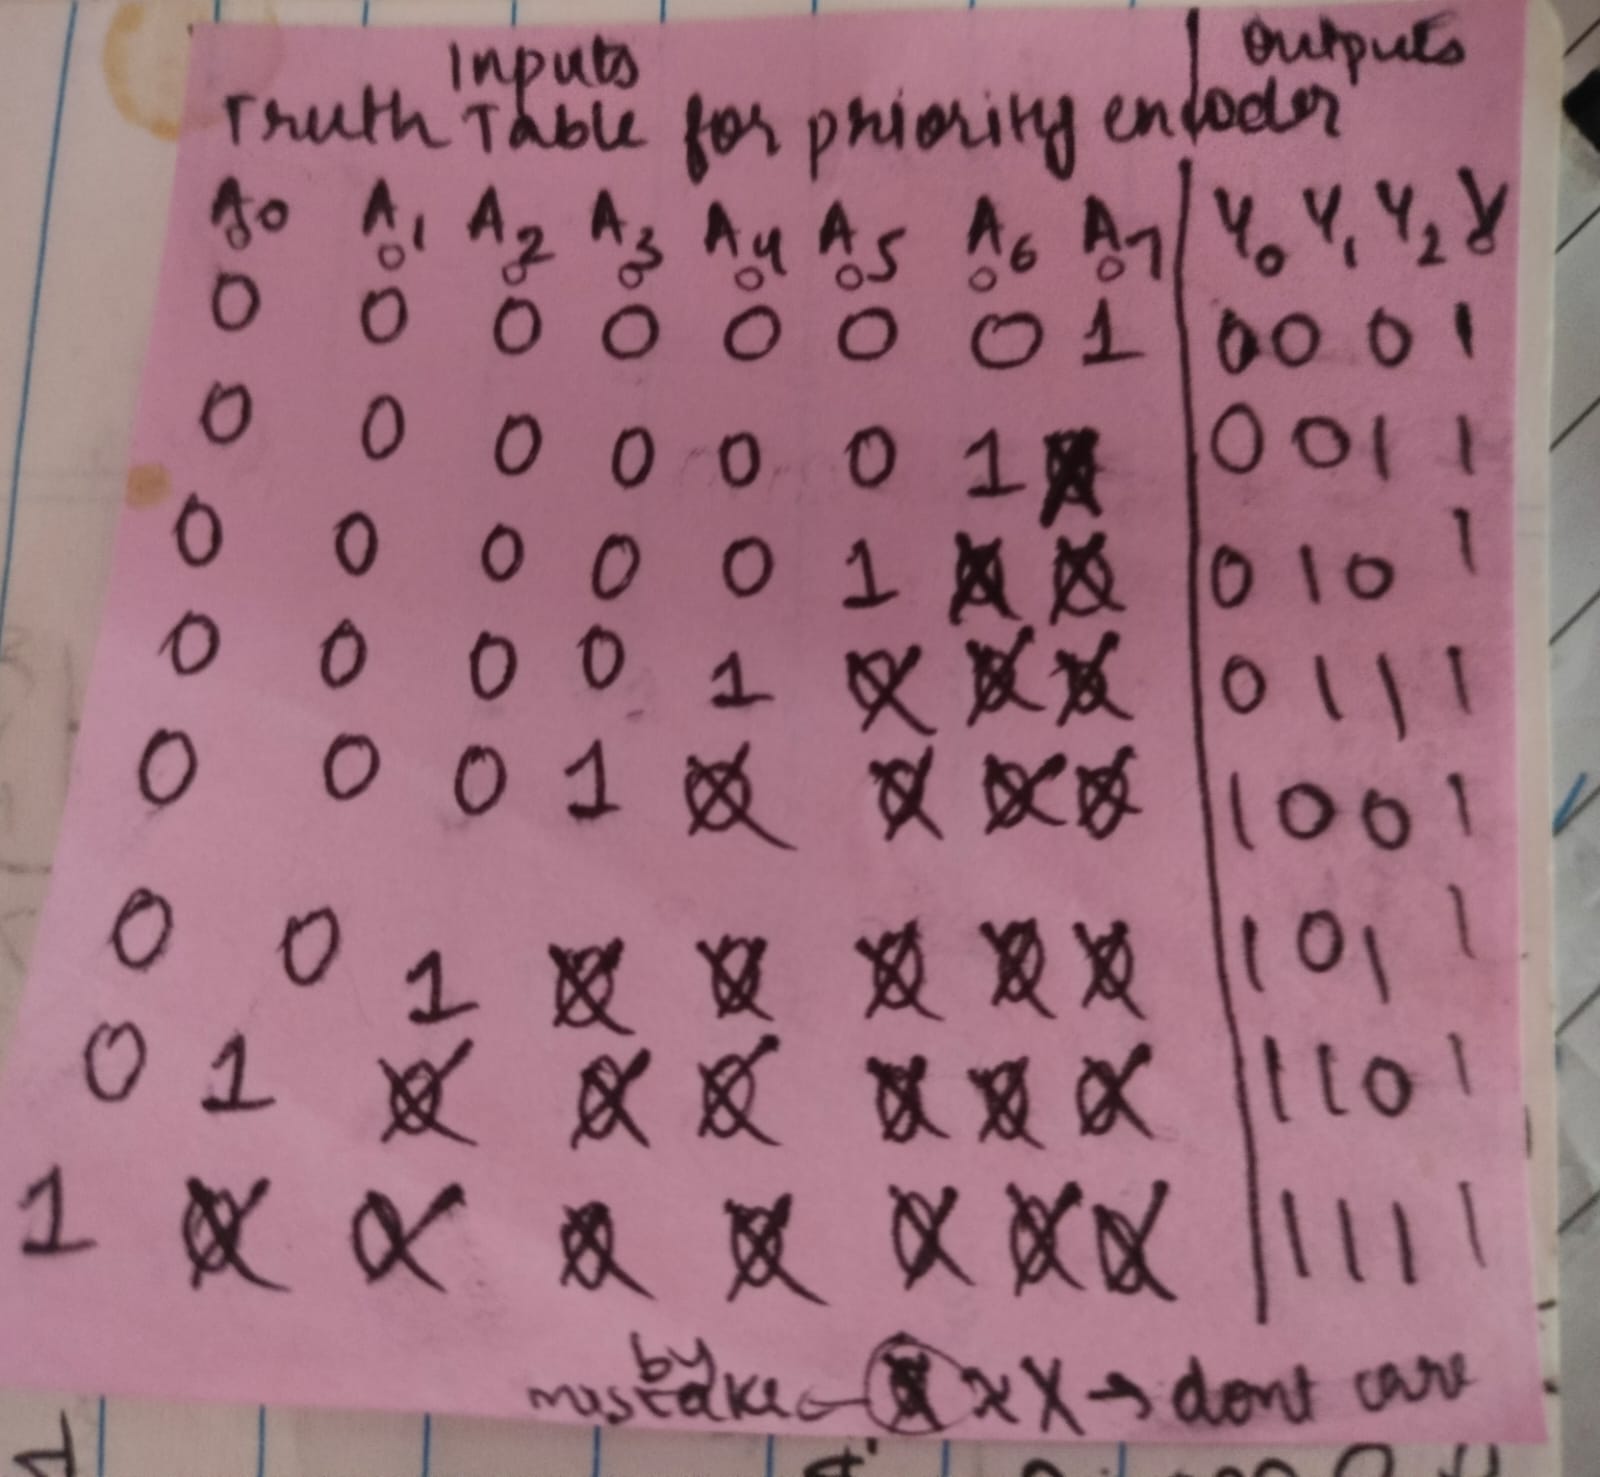 Inputs | Outputs
Truth Table for priority encoder
A0 A1 A2 A3 A4 A5 A6 A7 | Y0 Y1 Y2 V
0 0 0 0 0 0 0 0 | 0
0 0 0 0 0 0 0 1 | 0 0 0 1
0 0 0 0 0 0 1 X | 0 0 1 1
0 0 0 0 0 1 X X | 0 1 0 1
0 0 0 0 1 X X X | 0 1 1 1
0 0 0 1 X X X X | 1 0 0 1
0 0 1 X X X X X | 1 0 1 1
0 1 X X X X X X | 1 1 0 1
1 X X X X X X X | 1 1 1 1
by
mistake X X → dont care